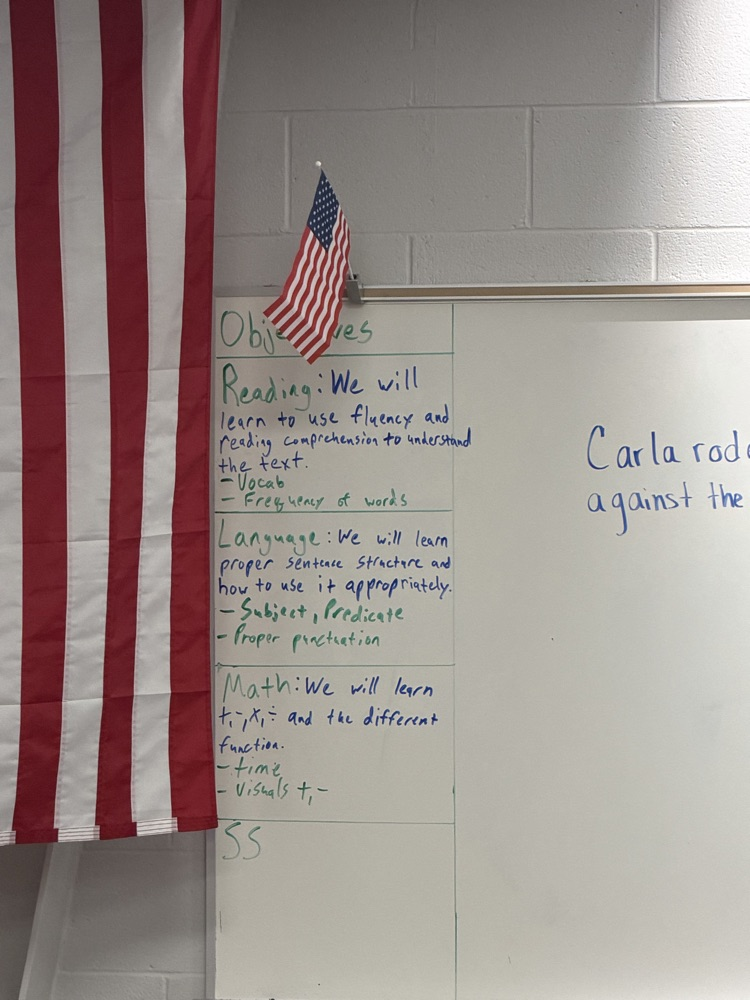 Reading: We will
learn to use fluency and
reading comprehension to understand
the text.
- Vocab
- Frequency of words
Language: We will learn
proper sentence structure and
how to use it appropriately.
- Subject, Predicate
- Proper punctuation
Math: We will learn
+, -, x, ÷ and the different
function.
- time
- Visuals +, -
SS
Carla
against the